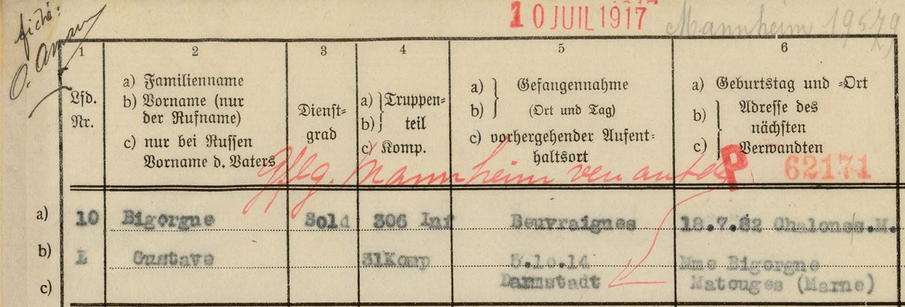 fiché:
10 JUIL 1917 Mannheim
1 2 3 4 5 6
Lfd. Nr.
a) Familienname
b) Vorname (nur der Rufname)
c) nur bei Russen Vorname d. Vaters
Dienst-
grad
a) Truppen-
b) teil
c) Komp.
a) Gefangennahme
b) (Ort und Tag)
c) vorhergehender Aufent-
haltsort
a) Geburtstag und -Ort
b) Adresse des
nächsten
c) Verwandten
Gflg. Mannheim P 62171
a) 10 Bigorgne Sold 306 Inf Beuvraignes 18.7.82 Chalons s.M.
b) L Gustave 21 Komp 5.10.14 Mme Bigorgne
c) Darmstadt Matouges (Marne)